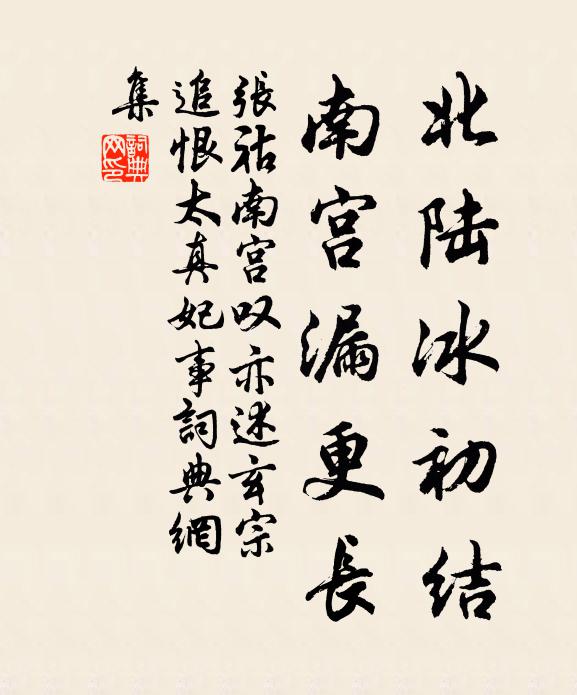 北陆冰初结
南宫漏更長
張祜南宫叹亦述玄宗
追恨太真妃事詞典網
集
詞典
网印